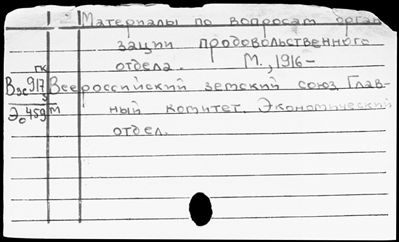 Материалы по вопросам органи
зации продовольственного
отдела. М., 1916-
ГК
Взс917 Всероссийский земский союз. Глав-
Эо459 М ный комитет. Экономический
отдел.